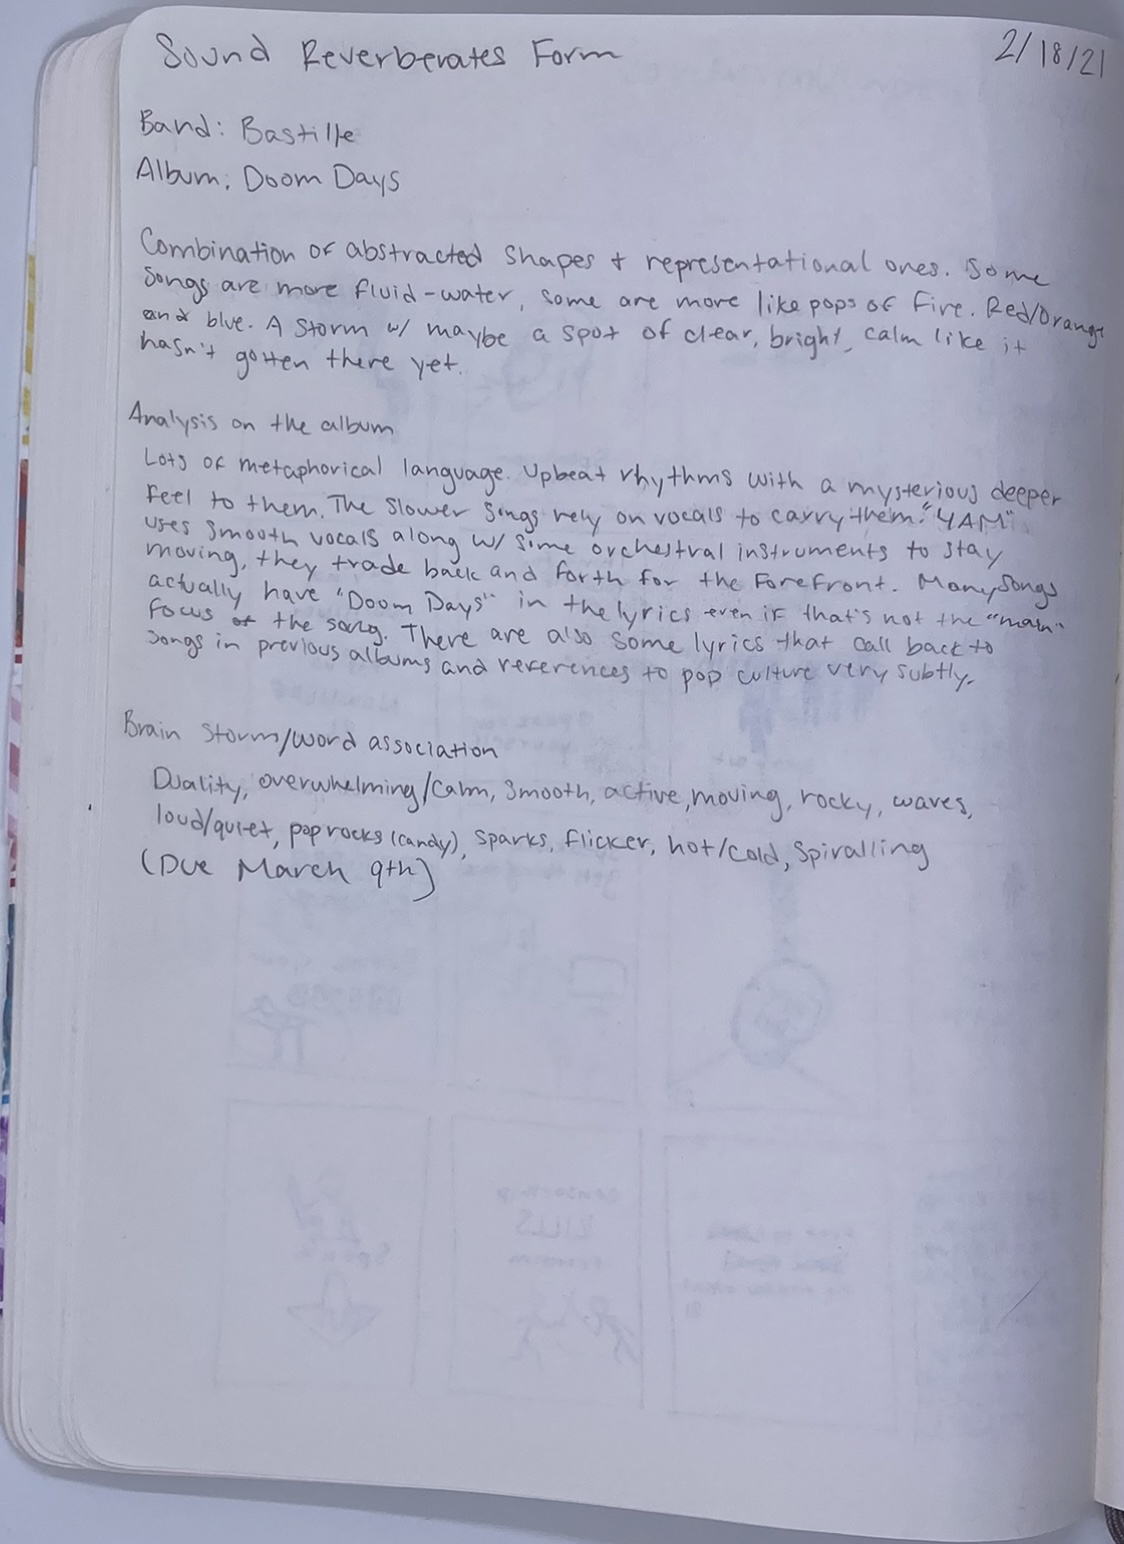 Sound Reverberates Form
2/18/21
Band: Bastille
Album: Doom Days
Combination of abstracted shapes + representational ones. Some
songs are more fluid-water, some are more like pops of fire. Red/Orange
and blue. A storm w/ maybe a spot of clear, bright, calm like it
hasn't gotten there yet.
Analysis on the album
Lots of metaphorical language. Upbeat rhythms with a mysterious deeper
feel to them. The slower songs rely on vocals to carry them. "4AM"
uses smooth vocals along w/ some orchestral instruments to stay
moving, they trade back and forth for the forefront. Many songs
actually have "Doom Days" in the lyrics even if that's not the "main"
focus of the song. There are also some lyrics that call back to
songs in previous albums and references to pop culture very subtly.
Brain storm/word association
Duality, overwhelming/calm, smooth, active, moving, rocky, waves,
loud/quiet, pop rocks (candy), sparks, flicker, hot/cold, spiralling
(Due March 9th)